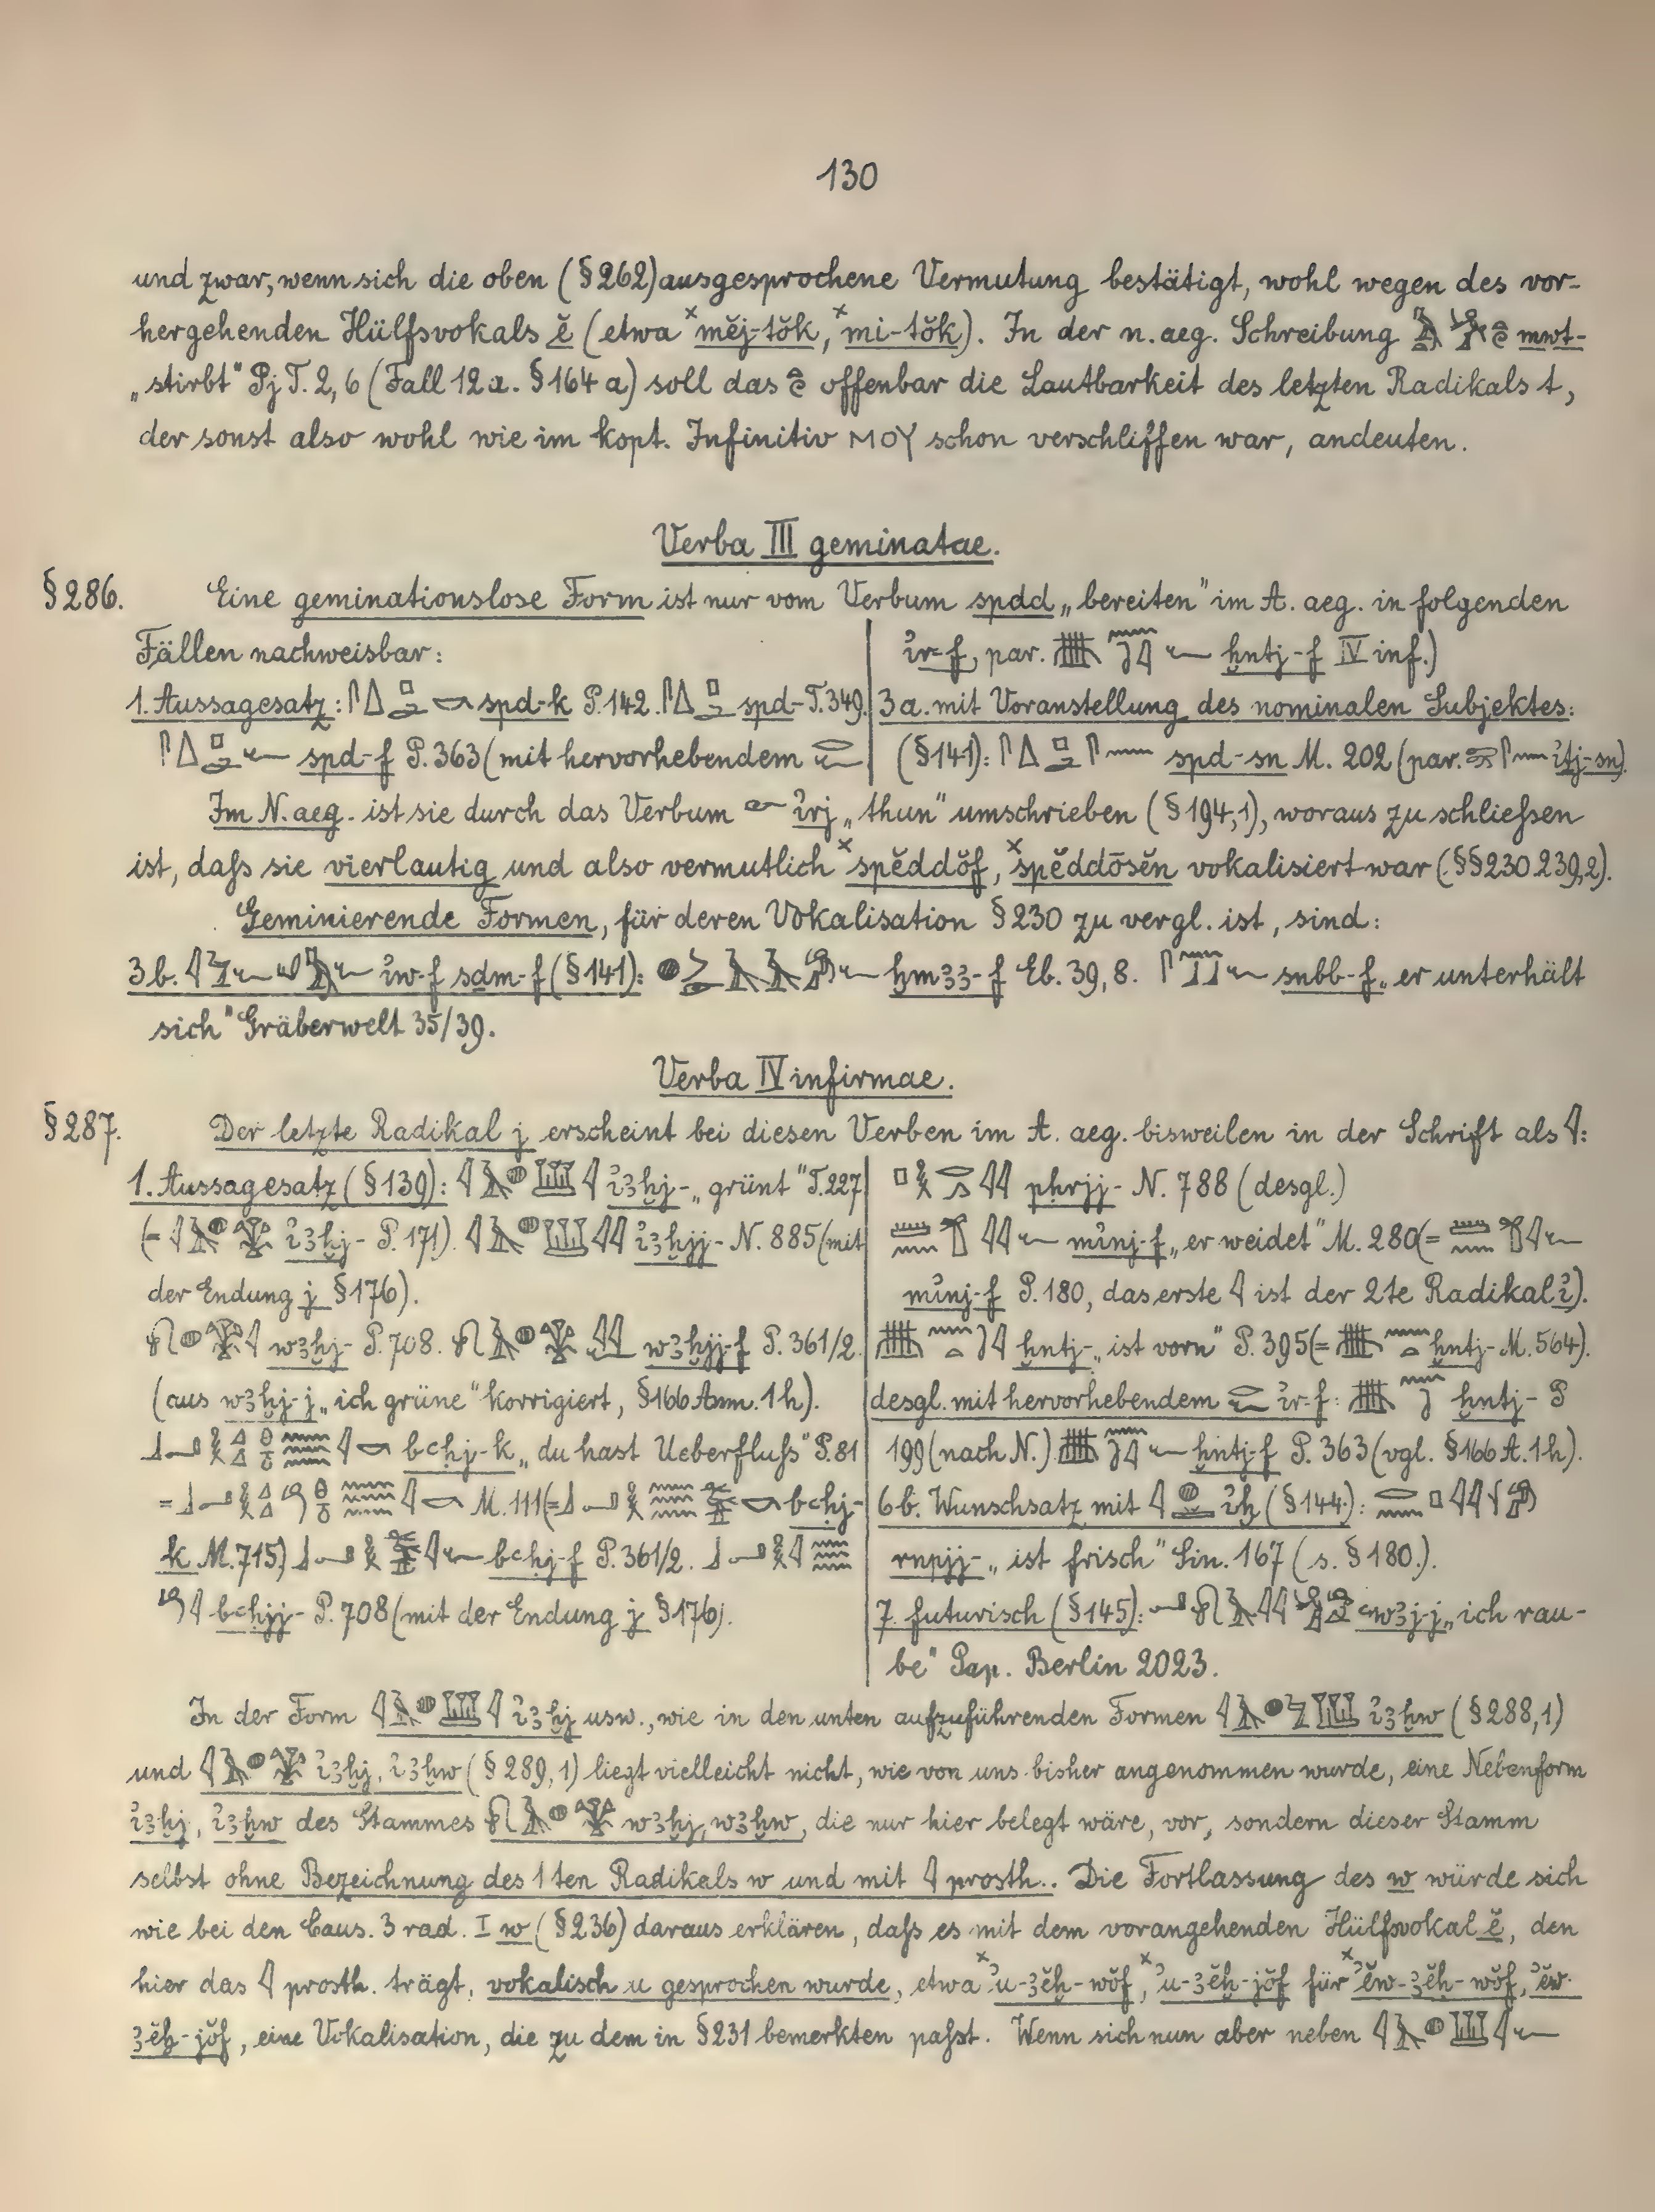 130
und zwar, wenn sich die oben (§262) ausgesprochene Vermutung bestätigt, wohl wegen des vor-
hergehenden Hülfsvokals ĕ (etwa ˣmĕj-tŏk, ˣmi-tŏk). In der n. aeg. Schreibung mwt-
„stirbt“ Pj T. 2, 6 (Fall 12a. §164a) soll das offenbar die Lautbarkeit des letzten Radikals t,
der sonst also wohl wie im kopt. Infinitiv ⲙⲟⲩ schon verschliffen war, andeuten.
Verba III geminatae.
§286. Eine geminationslose Form ist nur vom Verbum spdd „bereiten“ im A. aeg. in folgenden
Fällen nachweisbar:
1. Aussagesatz: spd-k P. 142. spd- T. 349.
spd-f P. 363 (mit hervorhebendem
ỉr-f, par. ḫntj-f IV inf.)
3a. mit Voranstellung des nominalen Subjektes:
(§141): spd-sn M. 202 (par. ỉṯj-sn).
Im N. aeg. ist sie durch das Verbum ỉrj „thun“ umschrieben (§194,1), woraus zu schließen
ist, daſs sie vierlautig und also vermutlich ˣspĕddŏf, ˣspĕddōsĕn vokalisiert war (§§230. 239,2).
Geminierende Formen, für deren Vokalisation §230 zu vergl. ist, sind:
3b. ỉw-f sdm-f (§141): ḫmꜣꜣ-f Eb. 39, 8. snbb-f „er unterhält
sich“ Gräberwelt 35/39.
Verba IV infirmae.
§287. Der letzte Radikal j erscheint bei diesen Verben im A. aeg. bisweilen in der Schrift als 𓇋:
1. Aussagesatz (§139): ỉꜣḫj- „grünt“ T. 227
(= ỉꜣḫj- P. 171). ỉꜣḫjj- N. 885 (mit
der Endung j §176).
wꜣḫj- P. 708. wꜣḫjj-f P. 361/2.
(aus wꜣḫj-j „ich grüne“ korrigiert, §166 Anm. 1h).
bꜥḥj-k „du hast Ueberfluſs“ P. 81
= M. 111 (= bꜥḥj-
k M. 715) bꜥḥj-f P. 361/2.
bꜥḥjj- P. 708 (mit der Endung j §176).
pḥrjj- N. 788 (desgl.)
mỉnj-f „er weidet“ M. 280 (=
mỉnj-f P. 180, das erste 𓇋 ist der 2te Radikal ỉ).
ḫntj- „ist vorn“ P. 395 (= ḫntj- M. 564).
desgl. mit hervorhebendem ỉr-f: ḫntj- P
199 (nach N.) ḫntj-f P. 363 (vgl. §166 A. 1h).
6b. Wunschsatz mit ỉḫ (§144):
rnpjj- „ist frisch“ Sin. 167 (s. §180.).
7. futurisch (§145): ꜥwꜣj-j „ich rau-
be“ Pap. Berlin 2023.
In der Form ỉꜣḫj usw., wie in den unten aufzuführenden Formen ỉꜣḫw (§288,1)
und ỉꜣḫj, ỉꜣḫw (§289,1) liegt vielleicht nicht, wie von uns bisher angenommen wurde, eine Nebenform
ỉꜣḫj, ỉꜣḫw des Stammes wꜣḫj, wꜣḫw, die nur hier belegt wäre, vor, sondern dieser Stamm
selbst ohne Bezeichnung des 1ten Radikals w und mit 𓇋 prosth.. Die Fortlassung des w würde sich
wie bei den Caus. 3 rad. I w (§236) daraus erklären, daſs es mit dem vorangehenden Hülfsvokal ĕ, den
hier das 𓇋 prosth. trägt, vokalisch u gesprochen wurde, etwa ˣʾu-ꜣĕḫ-wŏf, ˣʾu-ꜣĕḫ-jŏf für ˣʾĕw-ꜣĕḫ-wŏf, ʾĕw-
ꜣĕḫ-jŏf, eine Vokalisation, die zu dem in §231 bemerkten paſst. Wenn sich nun aber neben